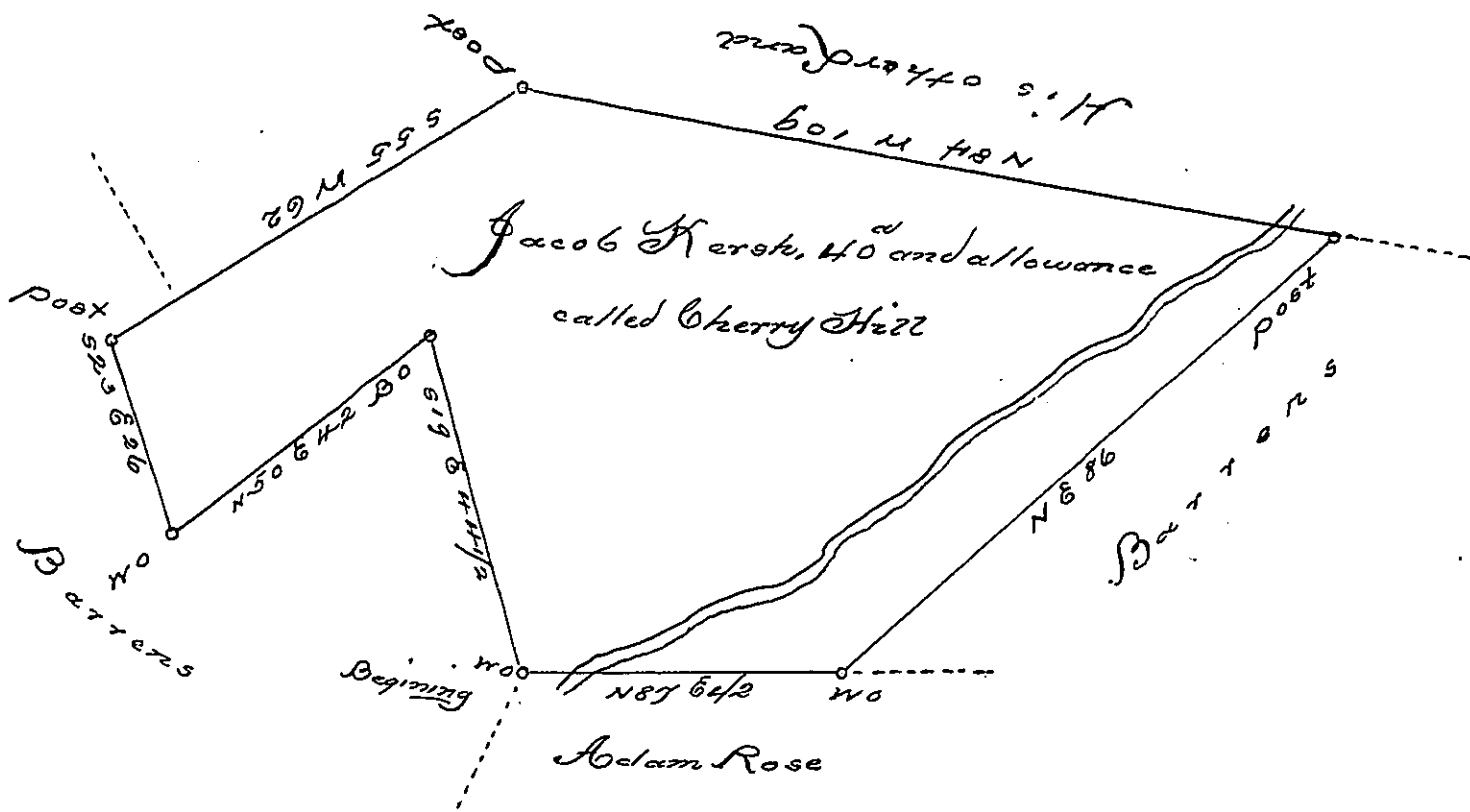 Post
His other Land
N 84 W 109
S 55 W 62
Jacob Kersh, 40 a and allowance
called Cherry Hill
Post
S 23 E 26
N 50 E 42
BO
S 19 E 44 1/2
WO
Barrens
Post
N E 86
Barrens
Begining
WO
N 87 E
WO
Adam Rose